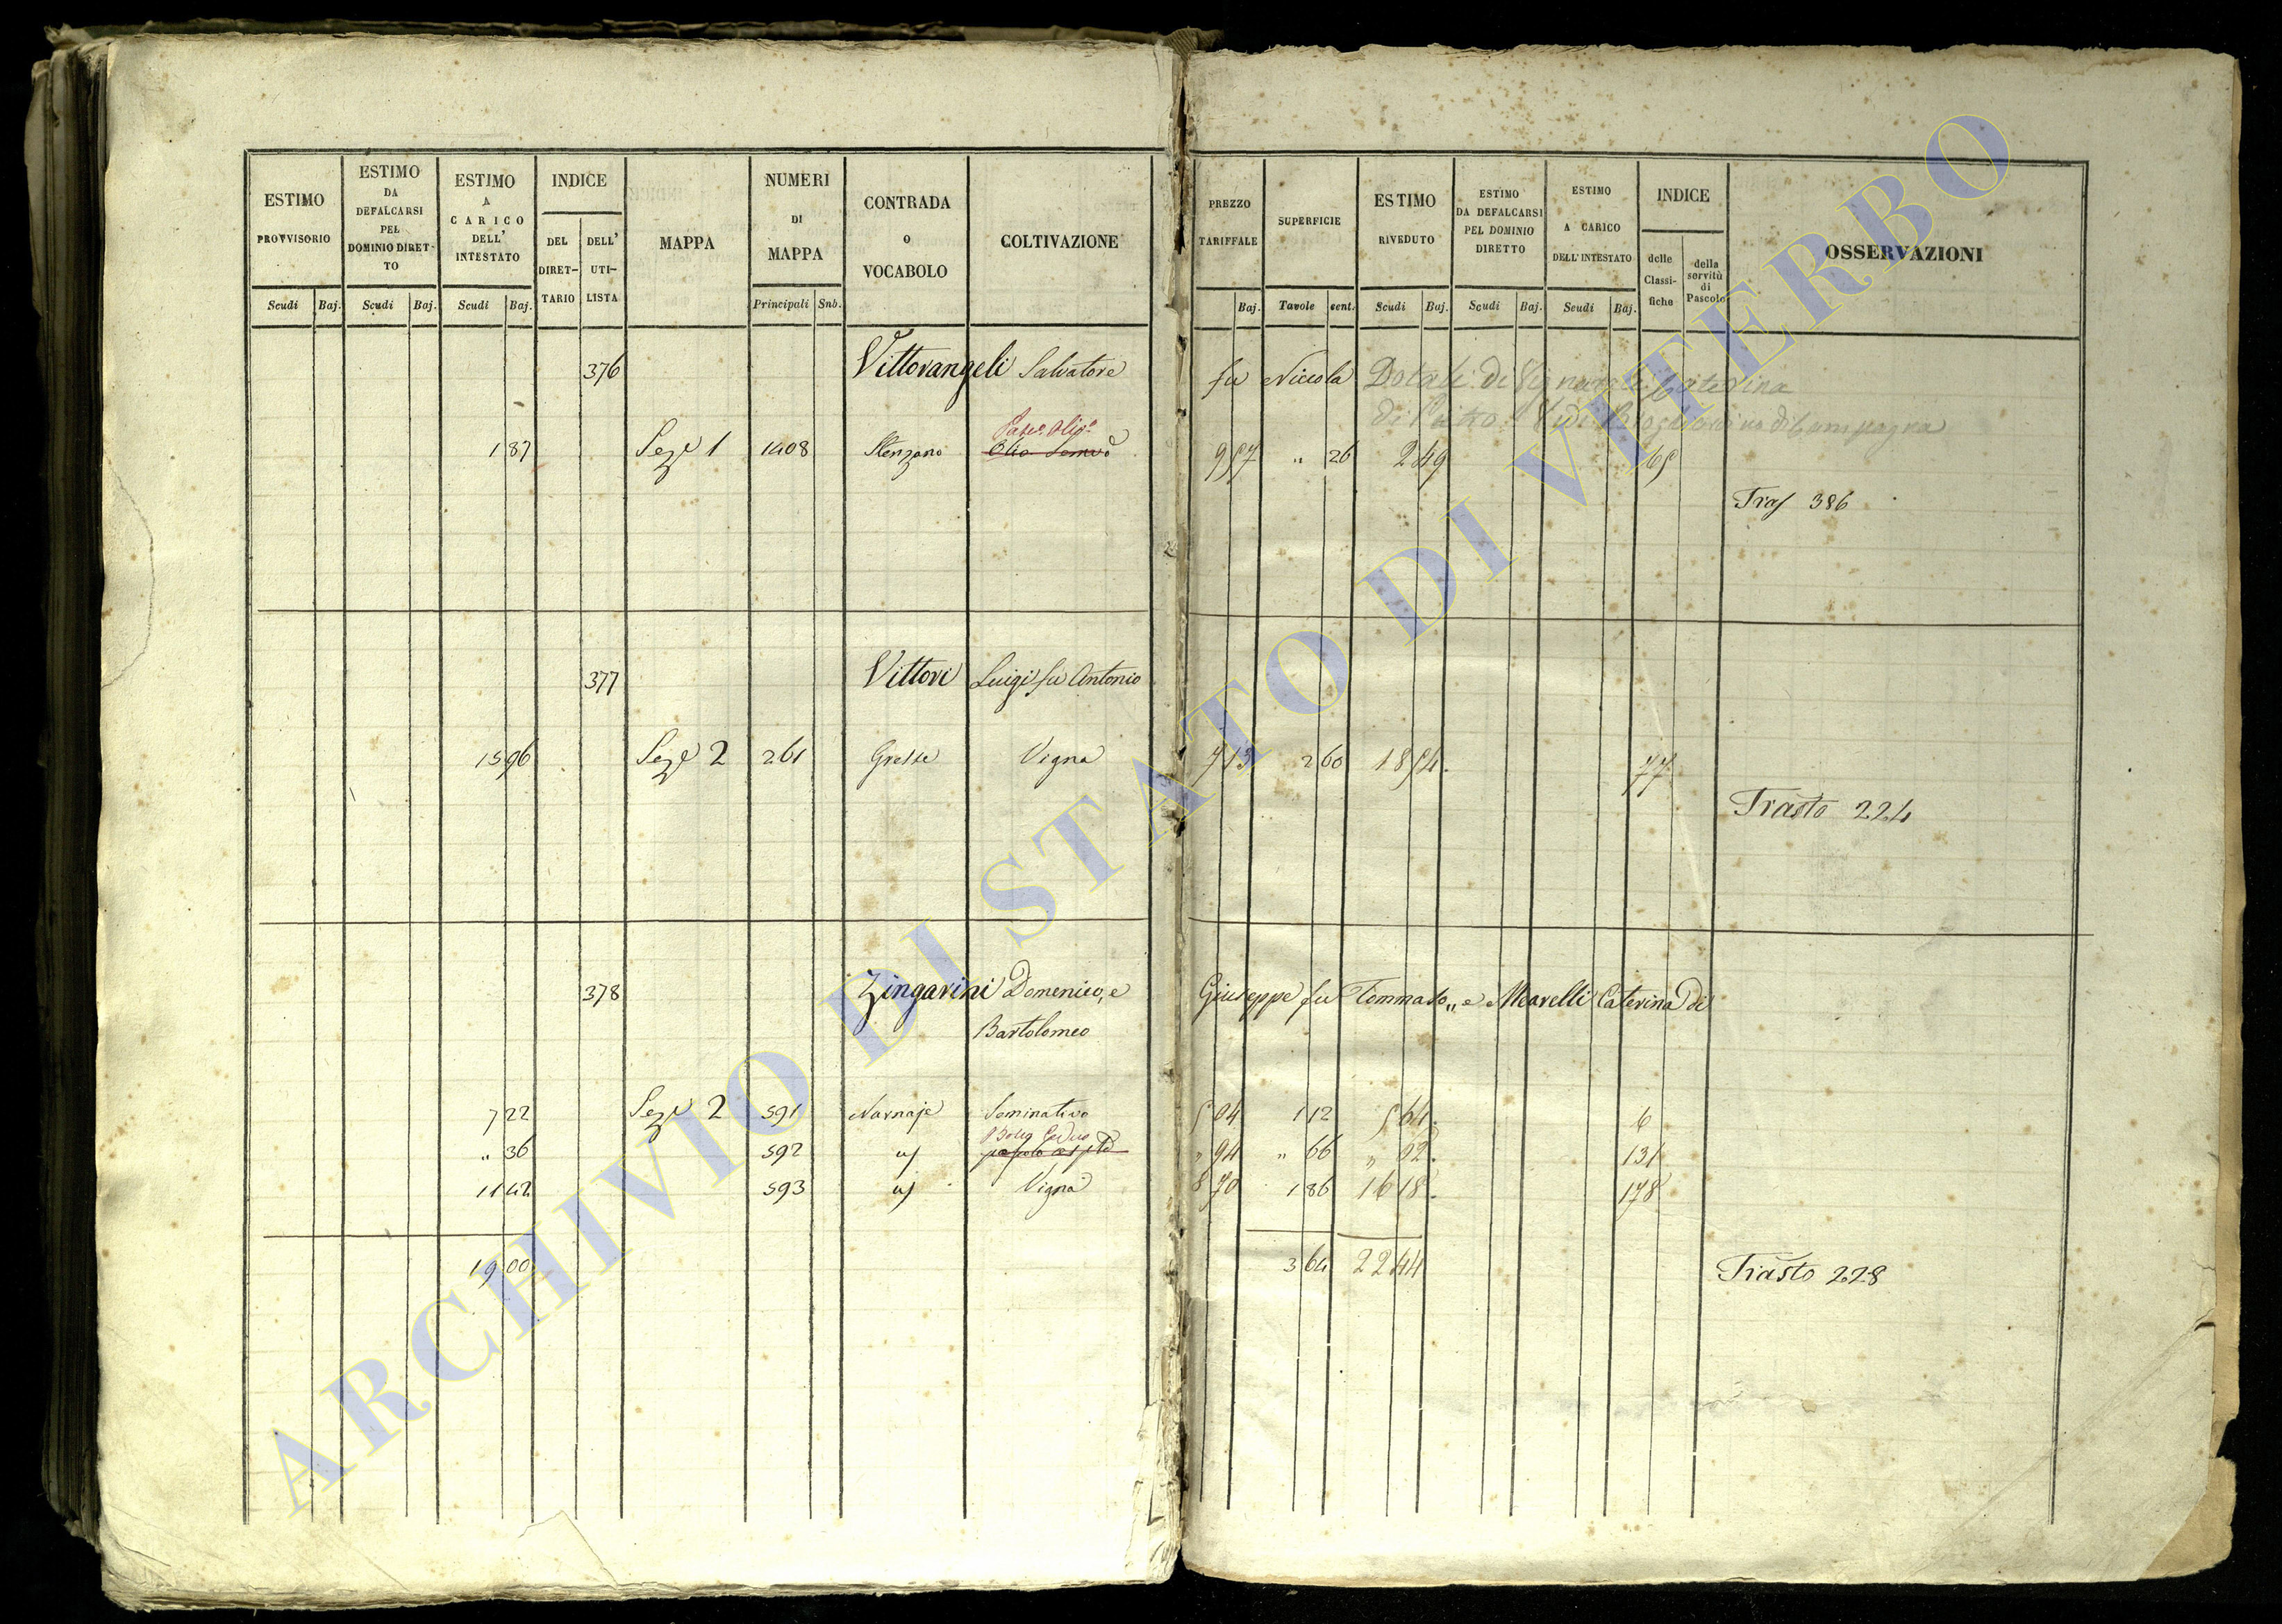 ESTIMO PROVVISORIO Scudi Baj.
ESTIMO DA DEFALCARSI PEL DOMINIO DIRET-TO Scudi Baj.
ESTIMO A CARICO DELL' INTESTATO Scudi Baj.
INDICE DEL DIRET-TARIO DELL' UTI-LISTA
MAPPA
NUMERI DI MAPPA Principali Snb.
CONTRADA O VOCABOLO
COLTIVAZIONE
PREZZO TARIFFALE Baj.
SUPERFICIE Tavole cent.
ESTIMO RIVEDUTO Scudi Baj.
ESTIMO DA DEFALCARSI PEL DOMINIO DIRETTO Scudi Baj.
ESTIMO A CARICO DELL' INTESTATO Scudi Baj.
INDICE delle Classi-fiche della servitù di Pascolo
OSSERVAZIONI
376 Vittorangeli Salvatore fu Niccola Dotali di Caterina
di Pietro
1 87 Seze 1 1408 Stenzano 9 57 " 26 2 49 65
Tras 386
377 Vittori Luigi fu Antonio
15 96 Seze 2 261 Grotte Vigna 7 13 2 60 18 54. 77
Trasto 224
378 Zingarini Domenico, e Giuseppe fu Tommaso,, e Mearelli Caterina di
Bartolomeo
7 22 Seze 2 591 Narnaje Seminativo 5 04 1 12 5 64. 6
Bosco Ceduo
" 36 592 " 94 " 66 " 62. 131
11 42 593 Vigna 8 70 1 86 16 18. 178
19 00 3 64 22 44
Trasto 228
ARCHIVIO DI STATO DI VITERBO